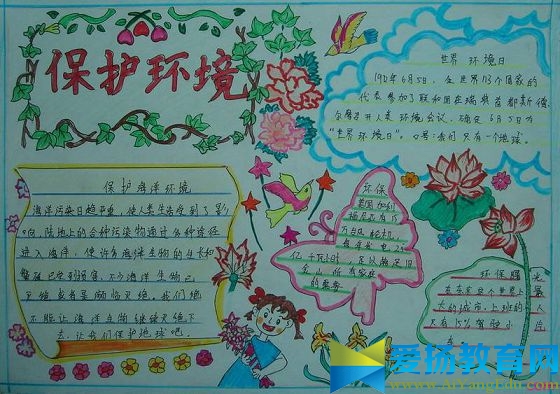 保护环境
世界 环境日
1972年6月5日，全世界113个国家的
代表参加了联和国在瑞典首都斯德
尔摩召开人类环境会议，确定6月5日为
“世界环境日”。口号：我们只有一个地球。
保护海洋环境
海洋污染日趋严重，使人类生活受到了影
响，陆地上的各种污染物通过各种途径
进入海洋，使许多海洋生物的生长和
繁殖已受到损害，不少海洋生物已
灭绝或者是濒临灭绝，我们绝
不能让海洋生物继续灭绝下
去，让我们保护地球吧。
环保
美国加利
福尼亚有1.5
万台风轮机，
每年发电25
亿千瓦时，足以满足旧
金山所有家庭
的需要
环保
在东京这个世界上
大的城市，上班的人
只有15%驾驶小
车
爱扬教育网